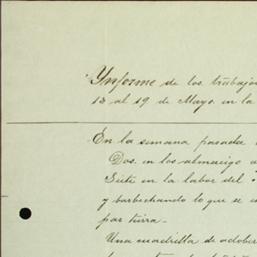 Ynforme de los trabajos
13 al 19 de Mayo en la
En la semana pasada
Dos en los almacigo
Siete en la labor del
y barbechando lo que se
par tierra.
Una cuadrilla de adober